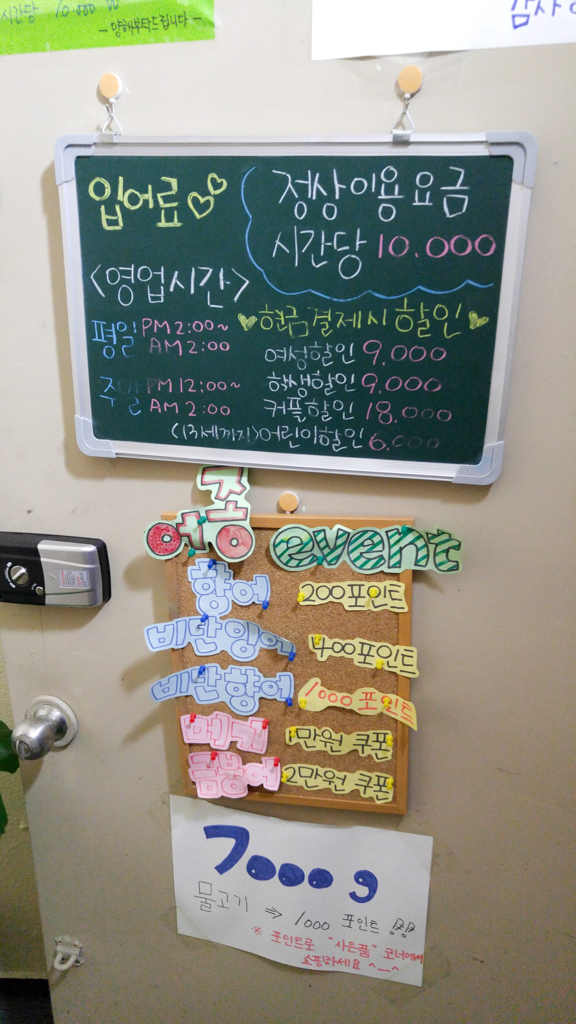 시간당 10.000
- 양해부탁드립니다 -
감사
입어료
정상이용요금
시간당 10.000
<영업시간>
평일 PM 2:00~
AM 2:00
주말 PM 12:00~
AM 2:00
현금결제시 할인
여성할인 9.000
학생할인 9.000
커플할인 18.000
(13세까지)어린이할인 6.000
어종 event
향어 200포인트
비단잉어 400포인트
비단향어 1000 포인트
메기 1만원 쿠폰
금붕어 2만원 쿠폰
7000g
물고기 ⇒ 1000 포인트
※ 포인트로 "사은품" 코너에서
쇼핑하세요 ^__^